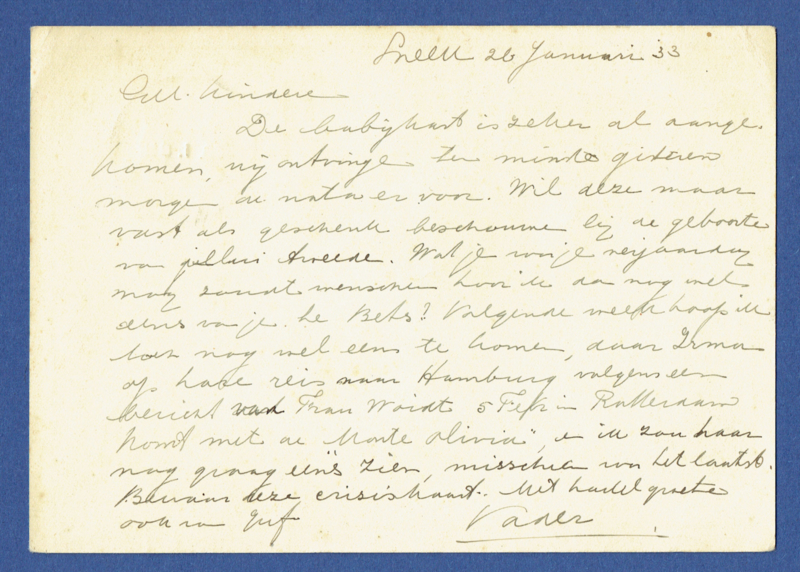 Sneek 26 Januari 33
Gel. kindere
De babykaart is zeker al aange
komen, wij ontvinge ten minste gisteren
morgen de nota er voor. Wil deze maar
vast als geschenk beschouwe bij de geboorte
va jullie tweede. Wat je voor je verjaardag
mag wenschen hoor ik da nog wel
eens va je he Bets? Volgende week hoop ik
toch nog wel eens te komen, daar Irma
op hare reis naar Hamburg volgens een
bericht van Frau Woidt 5 Febr in Rotterdam
komt met de Monte Olivia", e ik zou haar
nog graag eens zien, misschien voor het laatst.
Bewaar deze crisiskaart. Met hartel groete
ook va
Vader